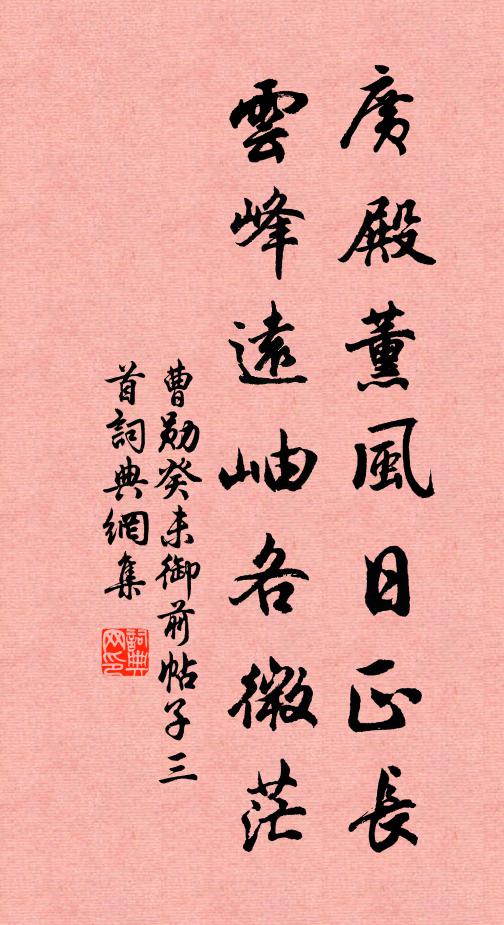 廣殿薰風日正長
雲峰遠岫各微茫
曹勛癸未御前帖子三
首詞典網集
詞典
网印